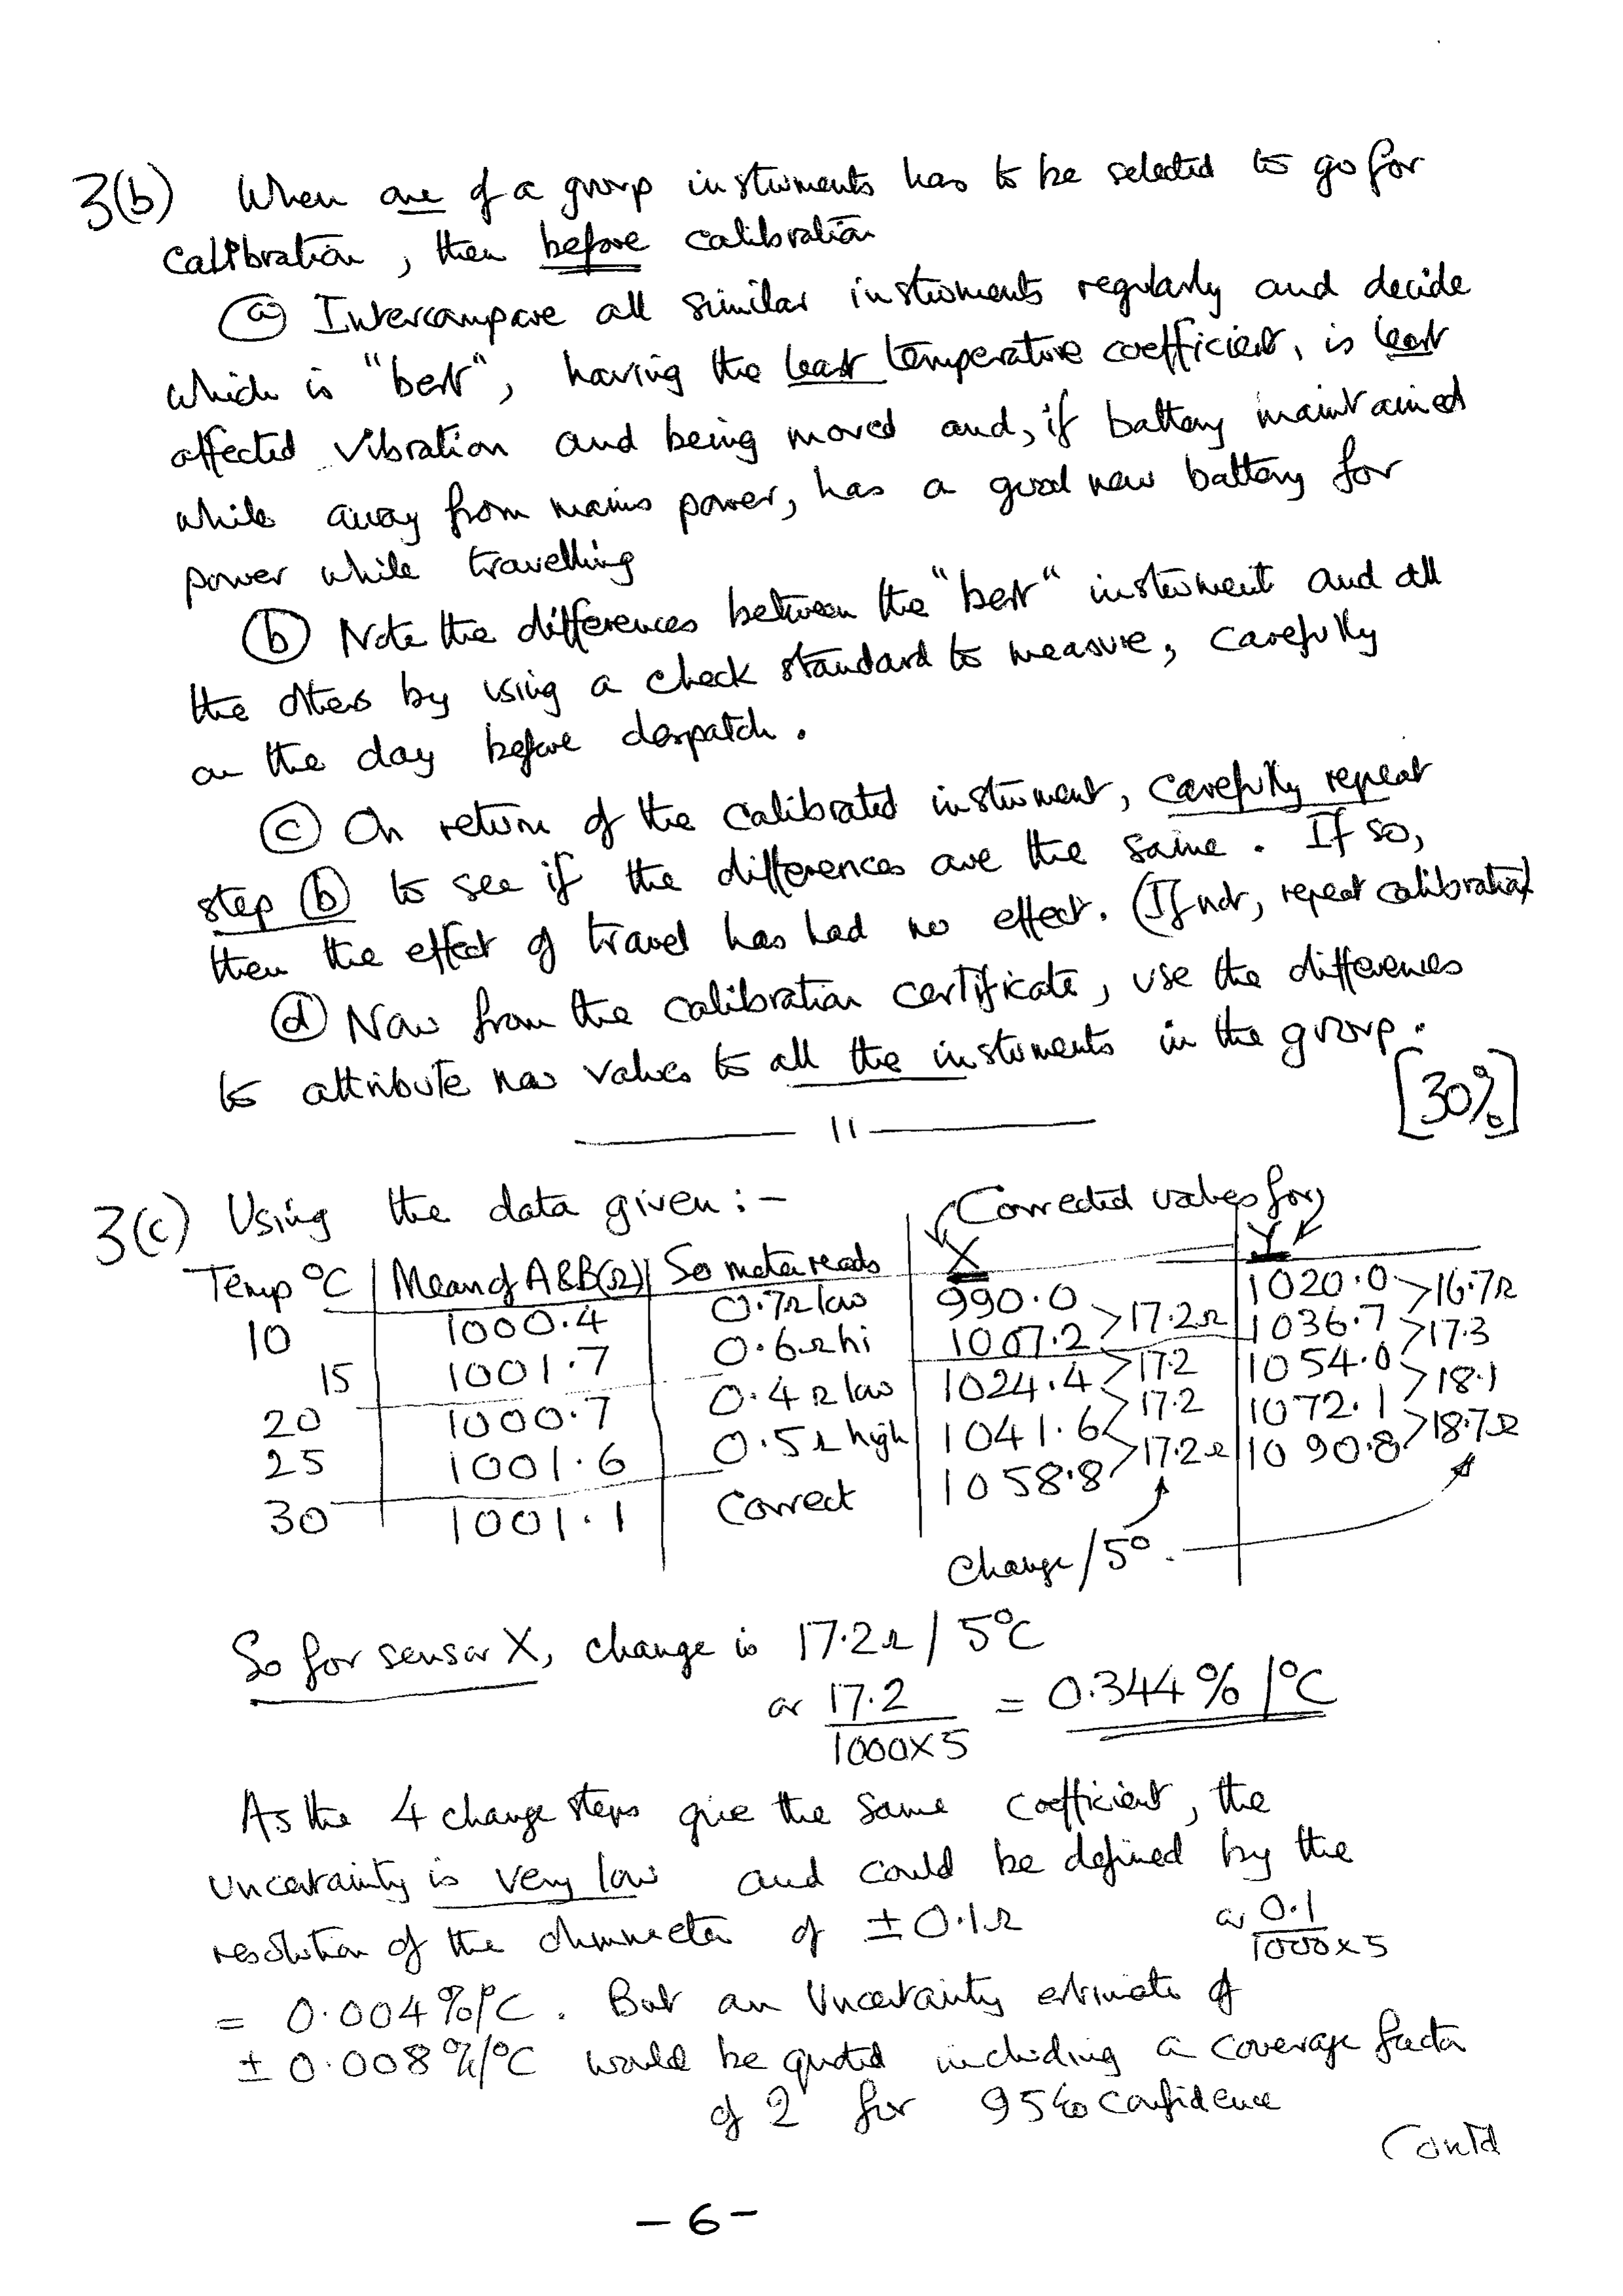 3(b) When one of a group instruments has to be selected to go for
calibration, then before calibration
(a) Intercompare all similar instruments regularly and decide
which is "best", having the least temperature coefficient, is least
affected vibration and being moved and, if battery maintained
while away from mains power, has a good new battery for
power while travelling
(b) Note the differences between the "best" instrument and all
the others by using a check standard to measure, carefully
on the day before despatch.
(c) On return of the calibrated instrument, carefully repeat
step (b) to see if the differences are the same. If so,
then the effect of travel has had no effect. (If not, repeat calibration)
(d) Now from the calibration certificate, use the differences
to attribute new values to all the instruments in the group.
[30%]
11
3(c) Using the data given:- Corrected values for
Temp °C Mean of A&B(Ω) So meter reads X Y
10 1000.4 0.7Ω low 990.0 1020.0
17.2Ω 16.7Ω
15 1001.7 0.6Ω hi 1007.2 1036.7
17.2 17.3
20 1000.7 0.4Ω low 1024.4 1054.0
17.2 18.1
25 1001.6 0.5Ω high 1041.6 1072.1
17.2Ω 18.7Ω
30 1001.1 Correct 1058.8 1090.8
Change/5°.
So for sensor X, change is 17.2Ω / 5°C
or 17.2 / 1000×5 = 0.344% /°C
As the 4 change steps give the same coefficient, the
uncertainty is very low and could be defined by the
resolution of the ohmmeter of ±0.1Ω or 0.1 / 1000×5
= 0.004%/°C. But an uncertainty estimate of
± 0.008%/°C would be quoted including a coverage factor
of 2 for 95% confidence
Contd
- 6 -